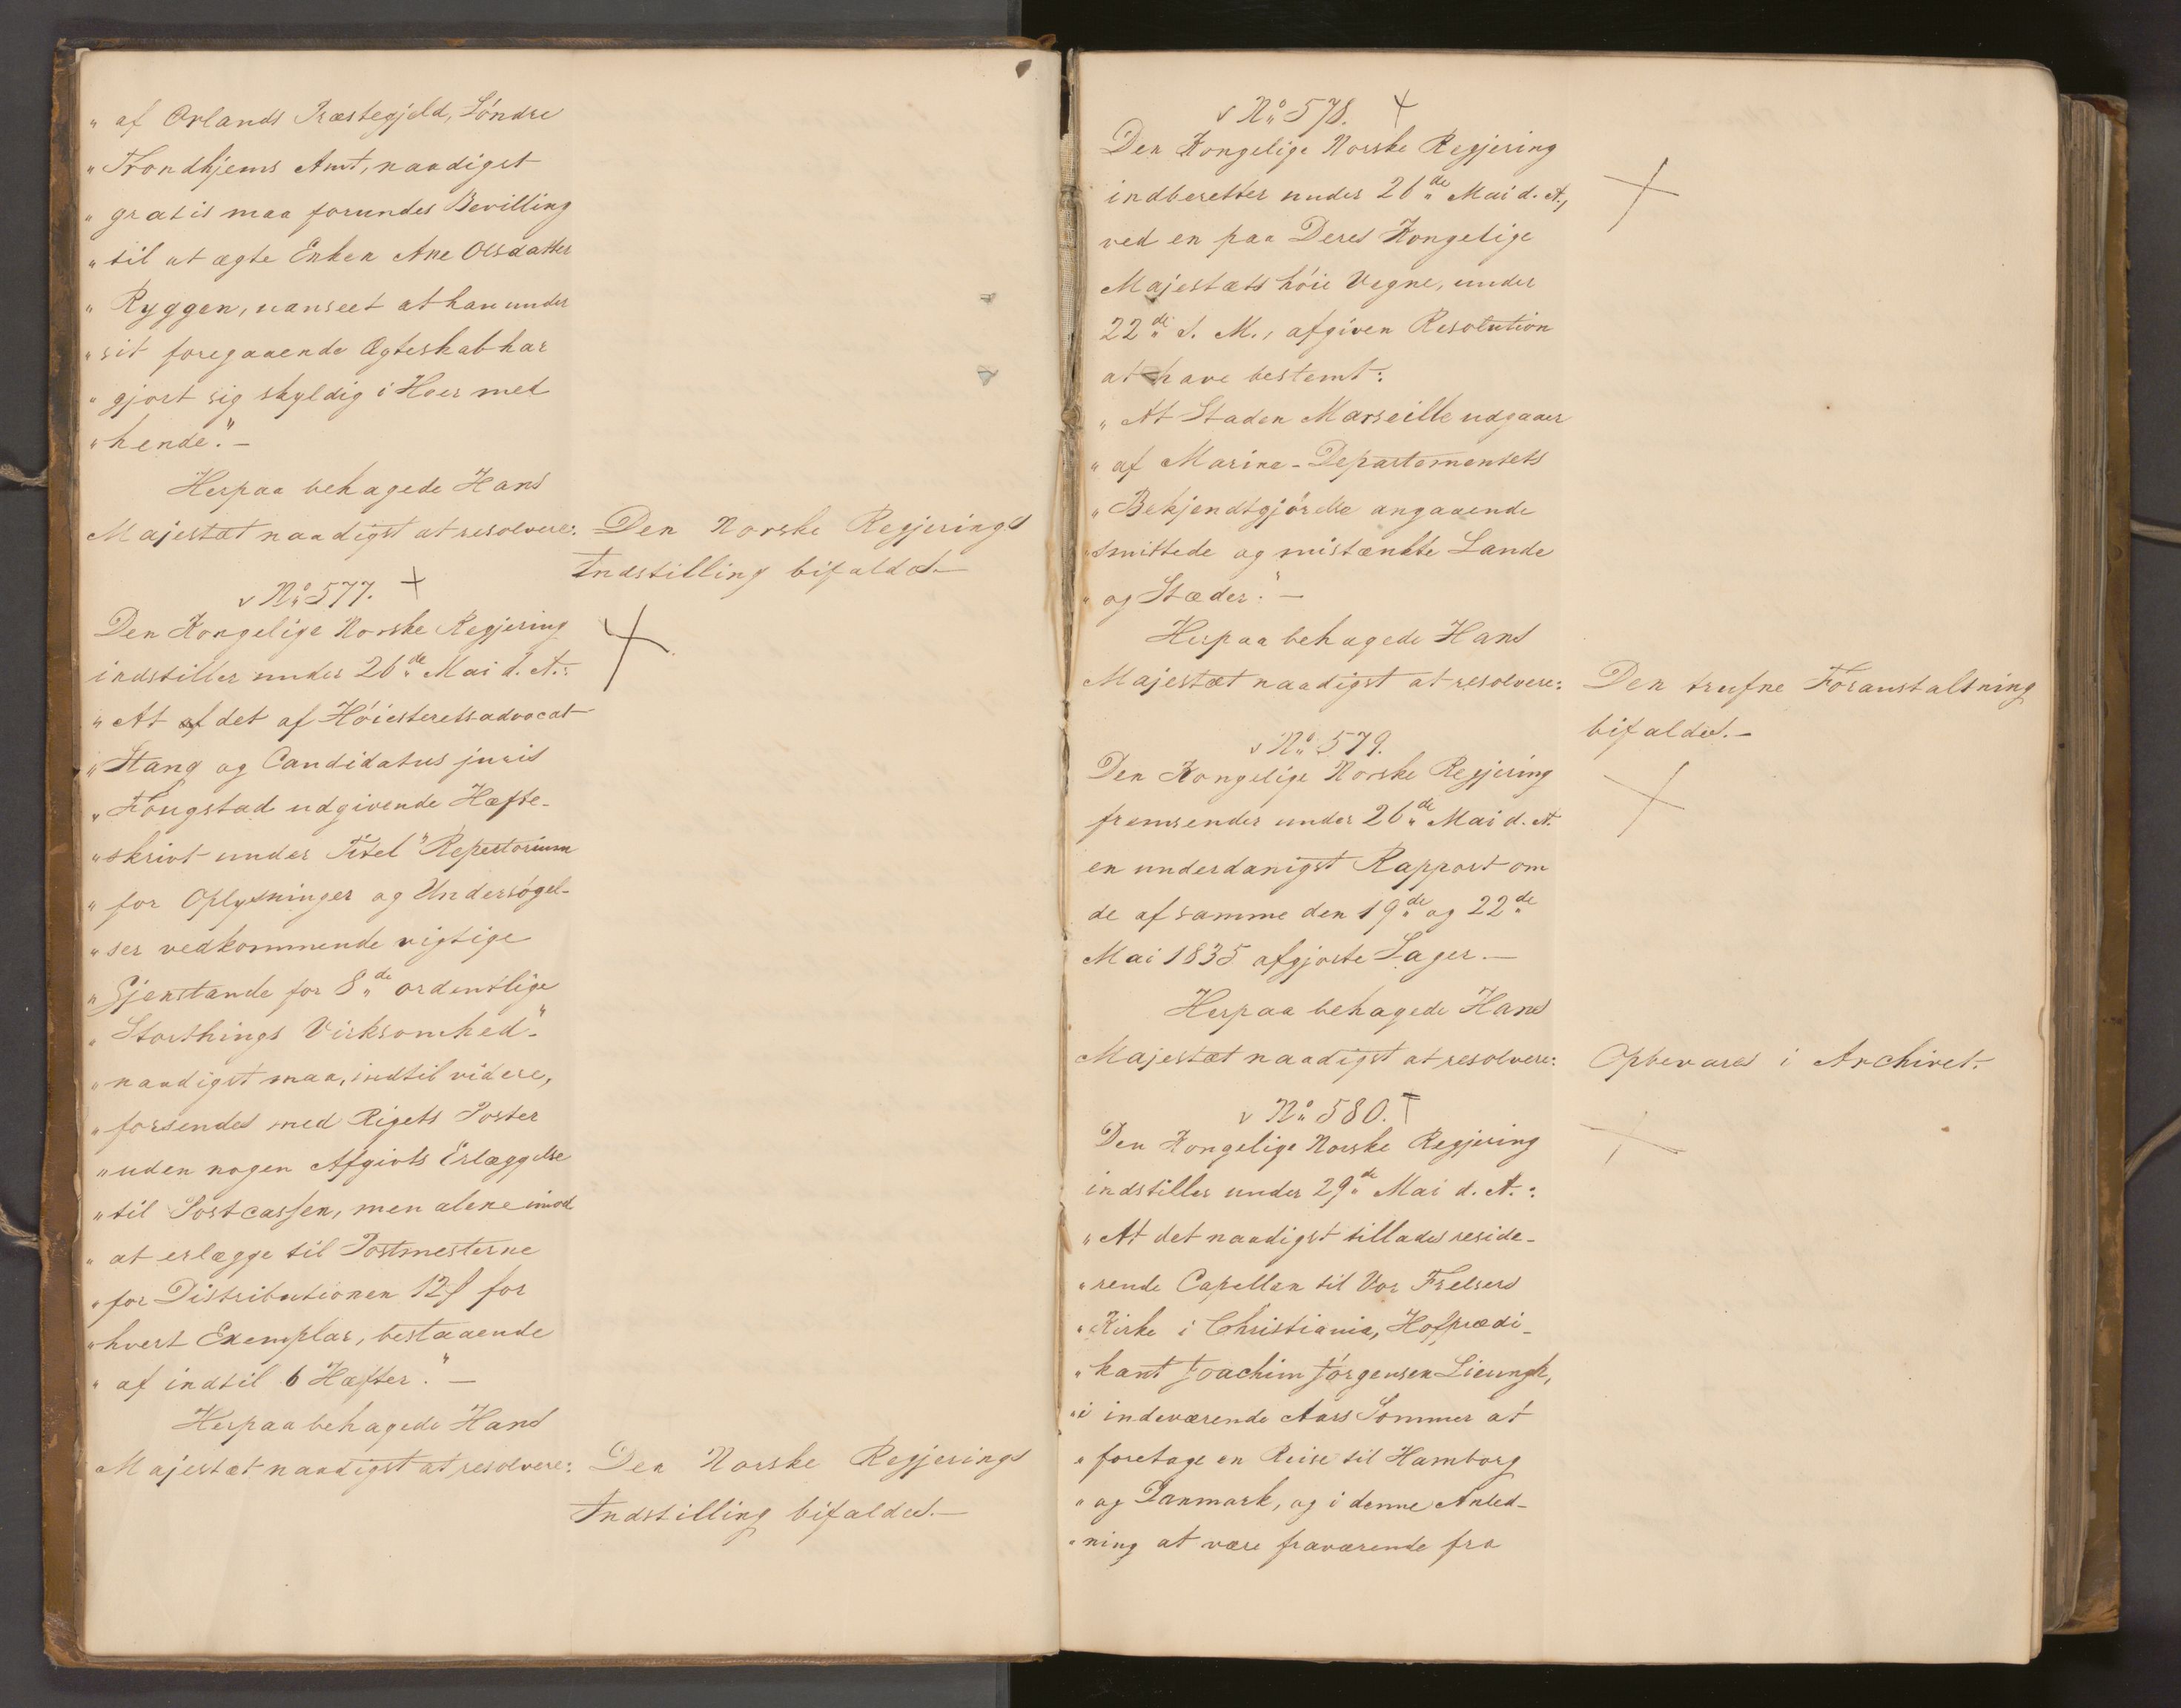 " af Orlands Præstegjeld, Söndre
" Trondhjems Amt, naadigst
" gratis maa forundes Bevilling
" til at ægte Enken Ane Olsdatter
" Ryggen, uanseet at han under
" sit foregaaende Ægteskab har
" gjort sig skyldig i Hoer med
" hende." —
Herpaa behagede Hans
Majestæt naadigst at resolvere:
Den Norske Regjerings
Indstilling bifaldes. —
v No 577. +
Den Kongelige Norske Regjering
indstiller under 26de Mai d. A.:
" At det af Höiesteretsadvocat
" Stang og Candidatus juris
" Fougstad udgivende Hæfte-
" skrivt under Titel "Repertorium
" for Oplysninger og Undersögel-
" ser vedkommende vigtige
" Gjenstande for 8de ordentlige
" Storthings Virksomhed"
" naadigst maa, indtil videre,
" forsendes med Rigets Poster
" uden nogen Afgivts Erlæggelse
" til Postcassen, men alene imod
" at erlægge til Postmesterne
" for Distributionen 12 ß for
" hvert Exemplar, bestaaende
" af indtil 6 Hæfter." —
Herpaa behagede Hans
Majestæt naadigst at resolvere:
Den Norske Regjerings
Indstilling bifaldes. —
v No 578. +
Den Kongelige Norske Regjering
indberetter under 26de Mai d. A.,
ved en paa Deres Kongelige
Majestæts höie Vegne, under
22de s. M., afgiven Resolution
at have bestemt:
" At Staden Marseille udgaaer
" af Marine-Departementets
" Bekjendtgjörelse angaaende
" smittede og mistænkte Lande
" og Stæder." —
Herpaa behagede Hans
Majestæt naadigst at resolvere:
Den trufne Foranstaltning
bifaldes. —
v No 579.
Den Kongelige Norske Regjering
fremsender under 26de Mai d. A.
en underdanigst Rapport om
de af samme den 19de og 22de
Mai 1835 afgjorte Sager. —
Herpaa behagede Hans
Majestæt naadigst at resolvere:
Opbevares i Archivet.
v No 580. +
Den Kongelige Norske Regjering
indstiller under 29de Mai d. A.:
" At det naadigst tillades reside-
" rende Capellan til Vor Frelsers
" Kirke i Christiania, Hofprædi-
" kant Joachim Jörgensen Lieungh,
" i indeværende Aars Sommer at
" foretage en Reise til Hamborg
" og Danmark, og i denne Anled-
" ning at være fraværende fra